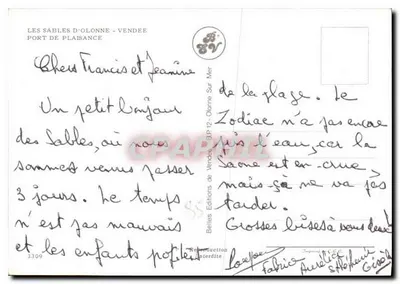 LES SABLES D'OLONNE - VENDEE
PORT DE PLAISANCE
Chers Francis et Jeanine
Un petit bonjour
des Sables, où nous
sommes venus passer
3 jours. Le temps
n'est pas mauvais
et les enfants profitent
de la plage. Le
Zodiac n'a pas encore
pris l'eau, car la
Saône est en crue,
mais ça ne va pas
tarder.
Grosses bises à vous deux
Fabrice Aurélie Stéphane
Gisèle
Belles Editions de Vendée
Olonne Sur Mer
Reproduction
interdite
1309
CPARAMA